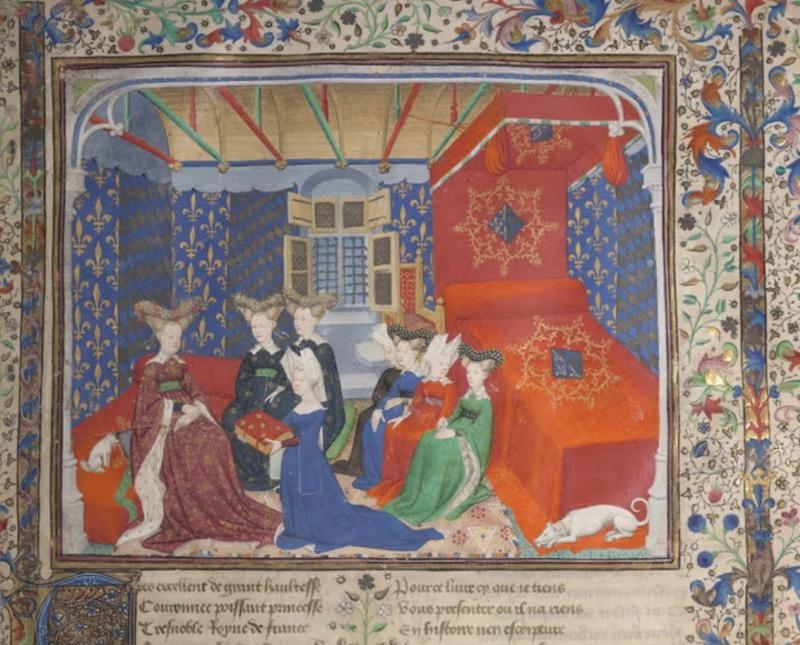 res excelent de grant haultesse
Couronnee poissant princesse
Tresnoble Royne de france
Pource liure cy que ie tiens
Vous presenter ou il na riens
En histoire nen escripture